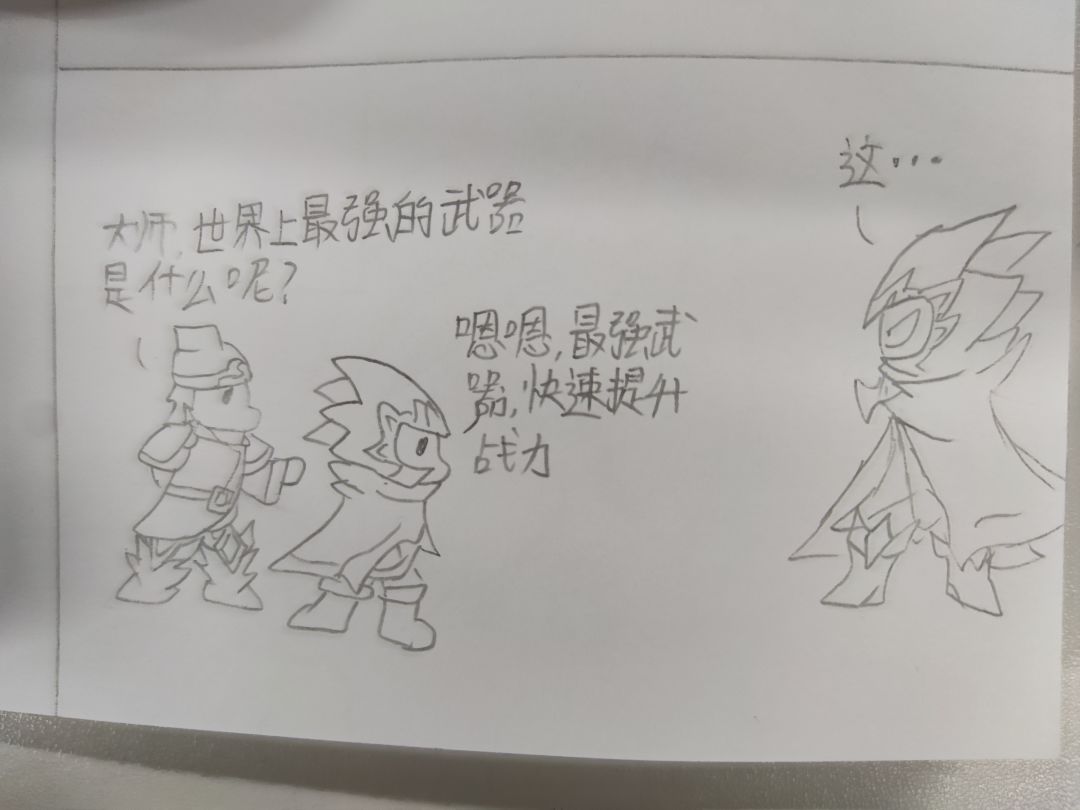 大师,世界上最强的武器
是什么呢?
嗯嗯,最强武
器,快速提升
战力
这…